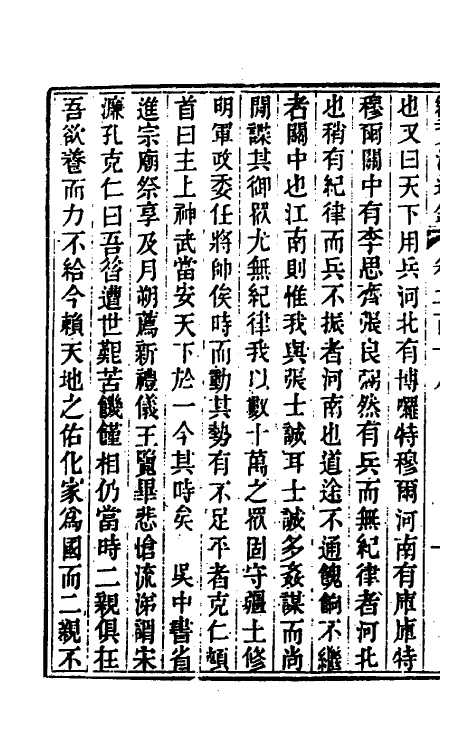 也又曰天下用兵河北有博囉特穆爾河南有庫庫特
穆爾關中有李思齊張良弼然有兵而無紀律者河北
也稍有紀律而兵不振者河南也道途不通餽餉不繼
者關中也江南則惟我與張士誠耳士誠多姦謀而尚
閒諜其御眾尤無紀律我以數十萬之眾固守疆土修
明軍政委任將帥俟時而動其勢有不足平者克仁頓
首曰主上神武當安天下於一今其時矣　吳中書省
進宗廟祭享及月朔薦新禮儀王覽畢悲愴流涕謂宋
濂孔克仁曰吾昔遭世艱苦饑饉相仍當時二親俱在
吾欲養而力不給今賴天地之佑化家爲國而二親不